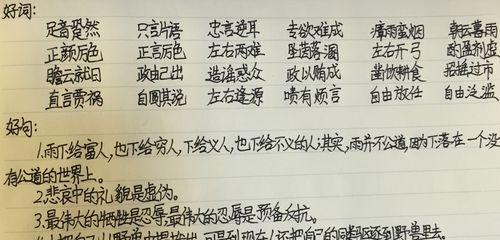 好词:
足音跫然 只言片语 忠言逆耳 专欲难成 瘴雨蛮烟 朝云暮雨
正颜厉色 正言厉色 左右两难 坠茵落溷 左右开弓 酌盈剂虚
瞻云就日 政由己出 造谣惑众 政以贿成 凿饮耕食 招摇过市
直言贾祸 自圆其说 左右逢源 啧有烦言 自由放任 自由泛滥
好句:
1.雨下给富人,也下给穷人,下给义人,也下给不义的人;其实,雨并不公道,因为下落在一个没
有公道的世界上。
2.悲哀中的礼貌是虚伪。
3.最伟大的牺牲是忍辱,最伟大的忍辱是预备反抗。